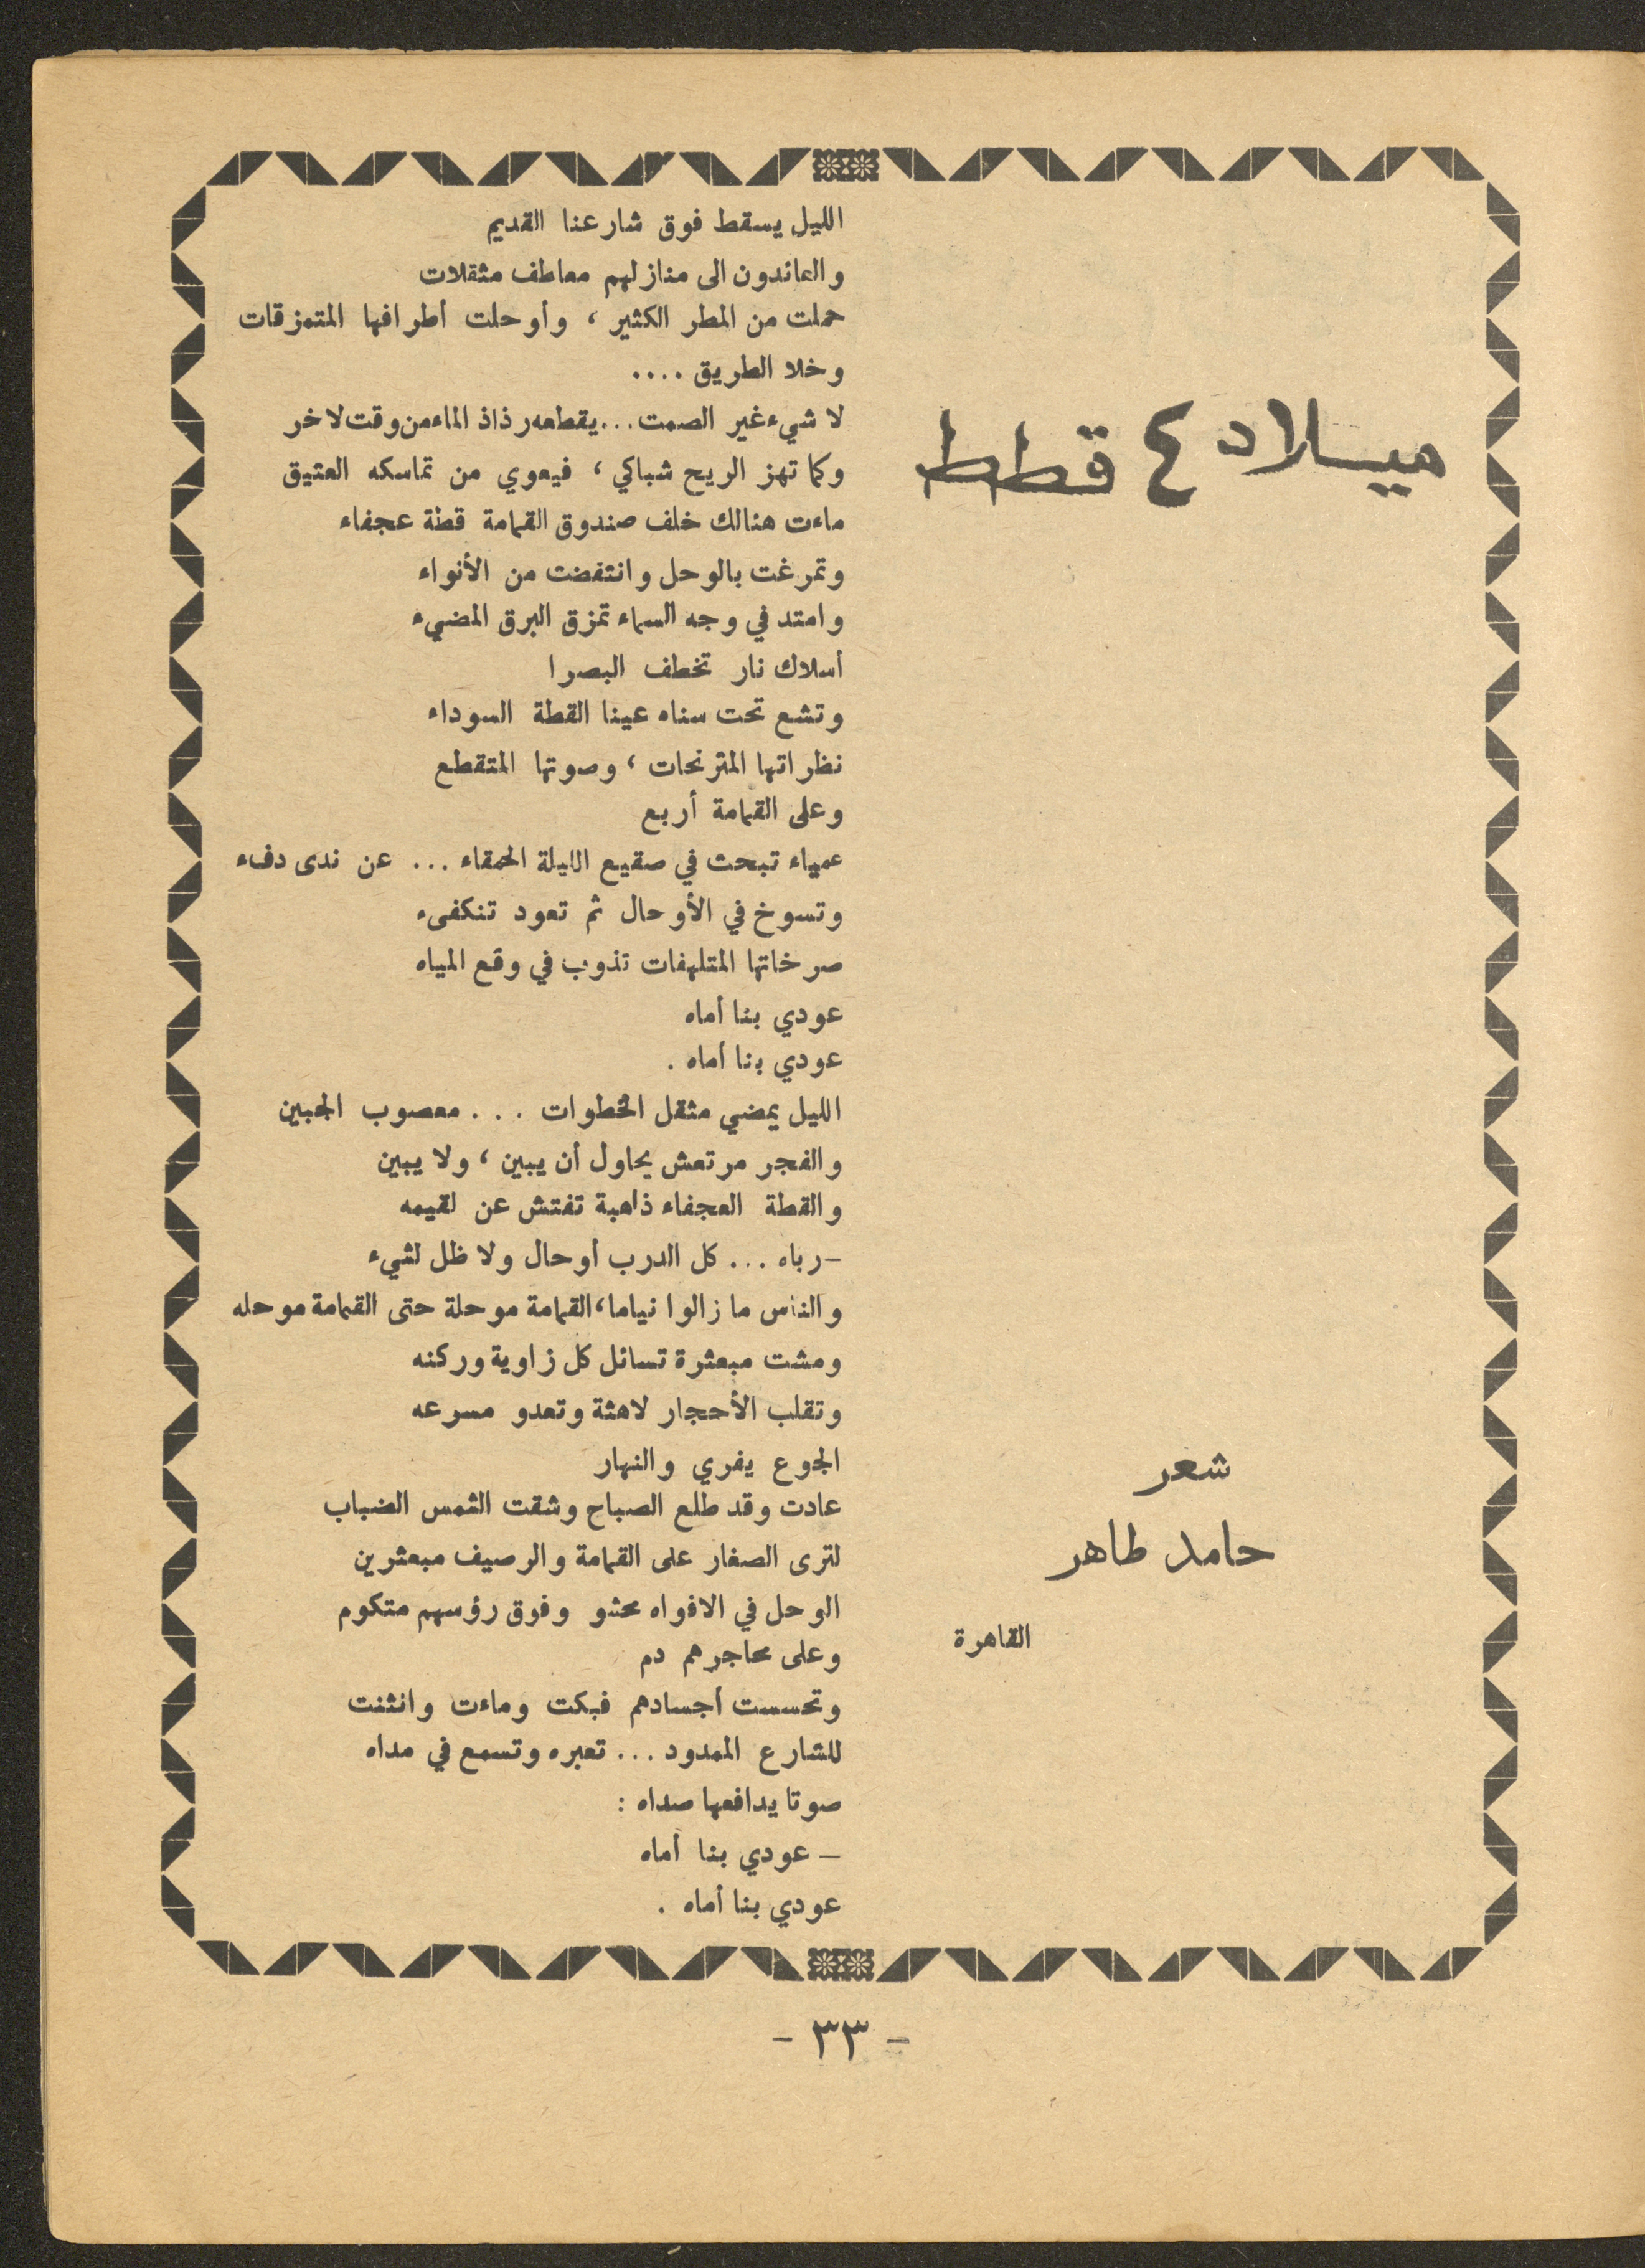 ميلاد ٤ قطط
شعر
حامد طاهر
القاهرة
الليل يسقط فوق شارعنا القديم
والعائدون الى منازلهم معاطف مثقلات
حملت من المطر الكثير ، وأوحلت أطرافها المتمزقات
وخلا الطريق ....
لا شيء غير الصمت ... يقطعه رذاذ الماء من وقت لاخر
وكما تهز الريح شباكي ، فيعوي من تماسكه العتيق
ماءت هنالك خلف صندوق القمامة قطة عجفاء
وتمرغت بالوحل وانتفضت من الأنواء
وامتد في وجه السماء تمزق البرق المضيء
أسلاك نار تخطف البصرا
وتشع تحت سناه عينا القطة السوداء
نظراتها المترنحات ، وصوتها المتقطع
وعلى القمامة أربع
عمياء تبحث في صقيع الليلة الحمقاء ... عن ندى دفء
وتسوخ في الأوحال ثم تعود تنكفىء
صرخاتها المتلهفات تذوب في وقع المياه
عودي بنا أماه
عودي بنا أماه .
الليل يمضي مثقل الخطوات ... معصوب الجبين
والفجر مرتعش يحاول أن يبين ، ولا يبين
والقطة العجفاء ذاهبة تفتش عن لقيمه
- رباه ... كل الدرب أوحال ولا ظل لشيء
والناس ما زالوا نياما ، القمامة موحلة حتى القمامة موحله
ومشت مبعثرة تسائل كل زاوية وركنه
وتقلب الأحجار لاهثة وتعدو مسرعه
الجوع يفري والنهار
عادت وقد طلع الصباح وشقت الشمس الضباب
لترى الصغار على القمامة والرصيف مبعثرين
الوحل في الافواه محشو وفوق رؤسهم متكوم
وعلى محاجرهم دم
وتحسست أجسادهم فبكت وماءت وانثنت
للشارع الممدود ... تعبره وتسمع في مداه
صوتا يدافعها صداه :
- عودي بنا أماه
عودي بنا أماه .
- ٣٣ -